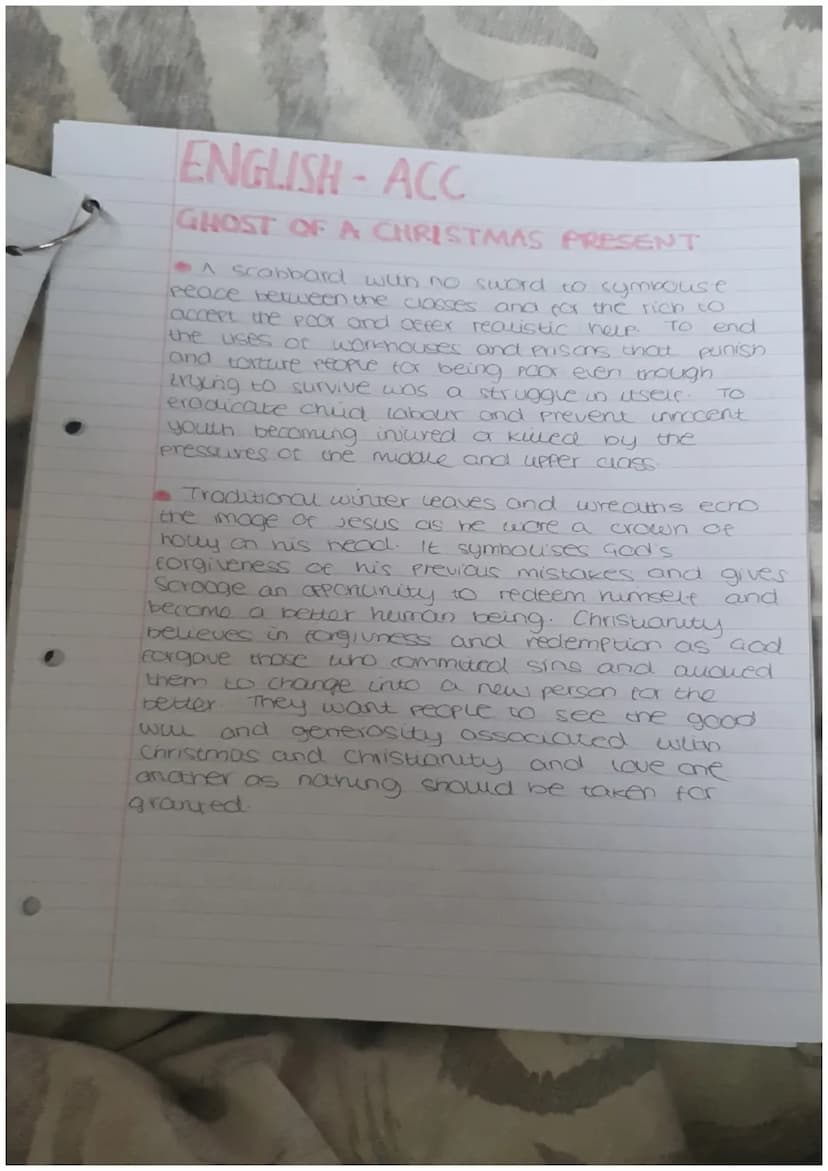 ENGLISH - ACC
GHOST OF A CHRISTMAS PRESENT
• A scabbard with no sword to symbolise
peace between the classes and for the rich to
accept the poor and offer realistic help. To end
the uses of workhouses and prisons that punish
and torture people for being poor even though
trying to survive was a struggle in itself. To
eradicate child labour and prevent innocent
youth becoming injured or killed by the
pressures of the middle and upper class.
• Traditional winter leaves and wreaths echo
the image of Jesus as he wore a crown of
holly on his head. It symbolises God's
forgiveness of his previous mistakes and gives
Scrooge an opportunity to redeem himself and
become a better human being. Christianity
believes in forgivness and redemption as God
forgave those who commited sins and allowed
them to change into a new person for the
better. They want people to see the good
will and generosity associated with
Christmas and Christianity and love one
another as nothing should be taken for
granted.